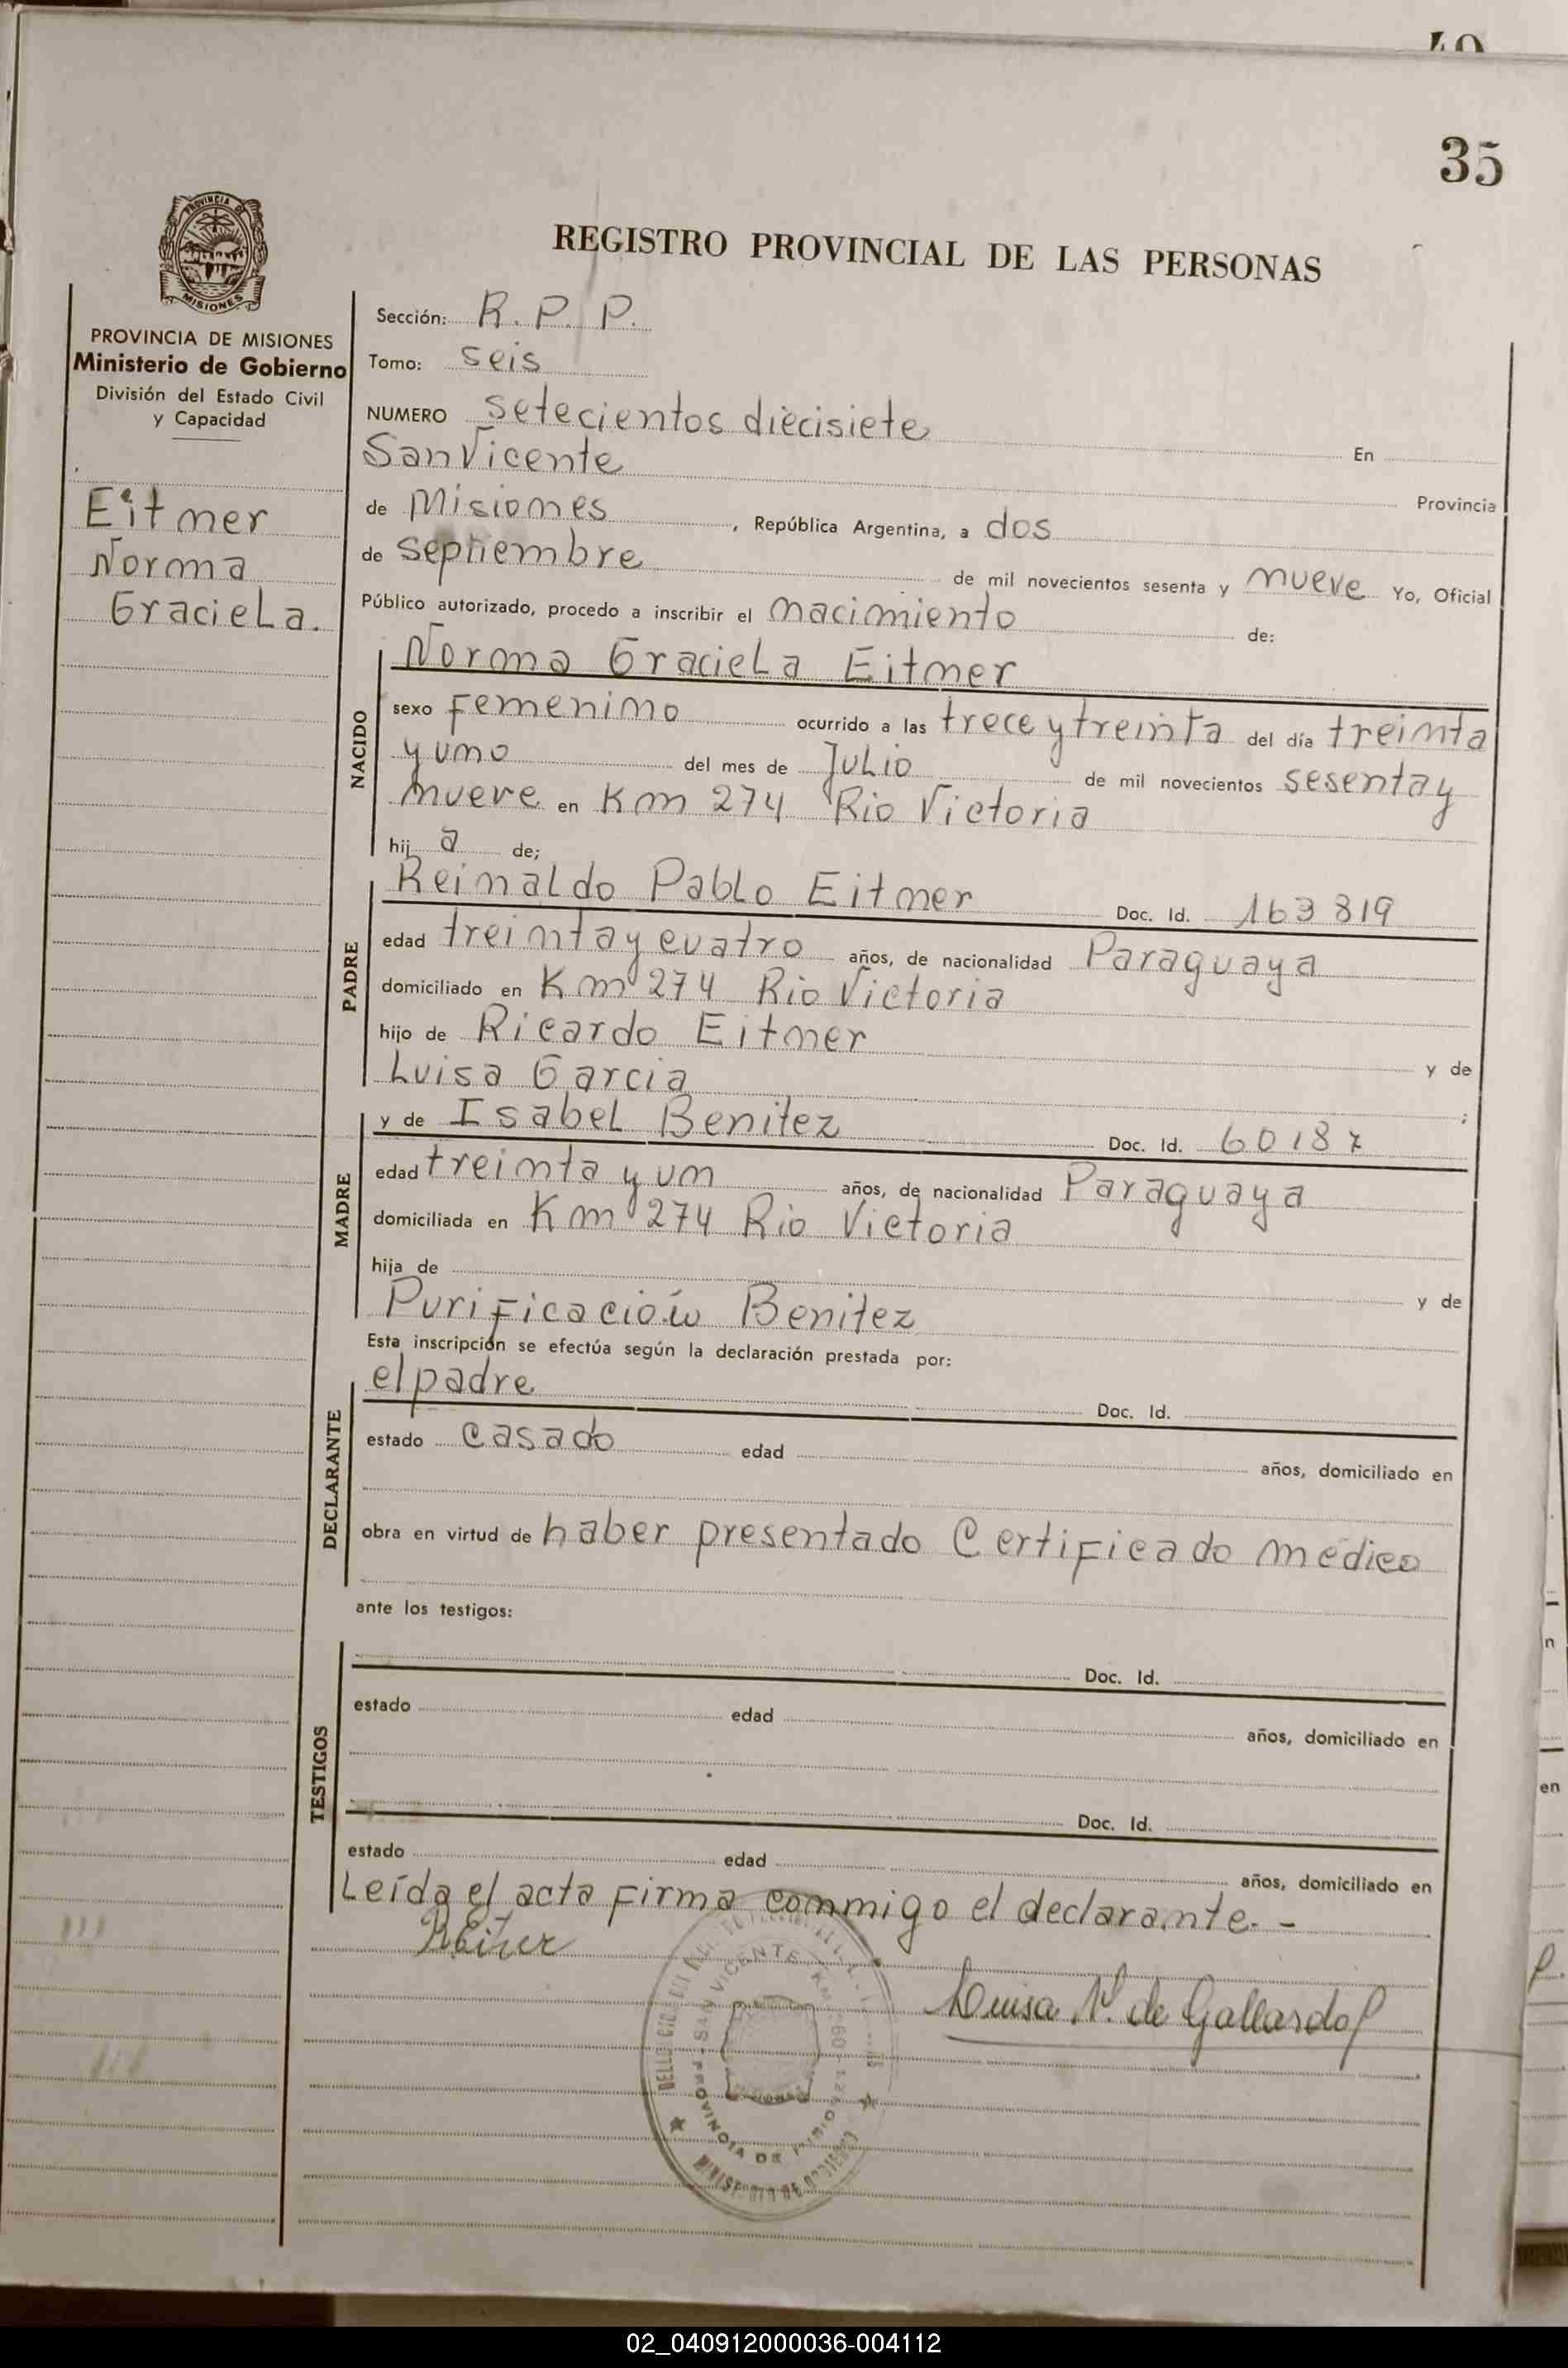 35
REGISTRO PROVINCIAL DE LAS PERSONAS
PROVINCIA DE MISIONES
Ministerio de Gobierno
División del Estado Civil
y Capacidad
Eitner
Norma
Graciela.
Sección: R. P. P.
Tomo: seis
NUMERO setecientos diecisiete En
San Vicente Provincia
de Misiones, República Argentina, a dos
de septiembre de mil novecientos sesenta y nueve Yo, Oficial
Público autorizado, procedo a inscribir el nacimiento de:
NACIDO
Norma Graciela Eitner
sexo femenino ocurrido a las trece y treinta del día treinta
y uno del mes de Julio de mil novecientos sesenta y
nueve en Km 274 Rio Victoria
hij a de;
PADRE
Reinaldo Pablo Eitner Doc. Id. 163 819
edad treinta y cuatro años, de nacionalidad Paraguaya
domiciliado en Km 274 Rio Victoria
hijo de Ricardo Eitner y de
Luisa Garcia ;
MADRE
y de Isabel Benitez Doc. Id. 60187
edad treinta y un años, de nacionalidad Paraguaya
domiciliada en Km 274 Rio Victoria
hija de y de
Purificación Benitez
Esta inscripción se efectúa según la declaración prestada por:
DECLARANTE
el padre Doc. Id.
estado casado edad años, domiciliado en
obra en virtud de haber presentado Certificado médico
ante los testigos:
TESTIGOS
Doc. Id.
estado edad años, domiciliado en
Doc. Id.
estado edad años, domiciliado en
Leída el acta firma conmigo el declarante. -
Luisa N. de Gallardo
SAN VICENTE
PROVINCIA DE
02_040912000036-004112